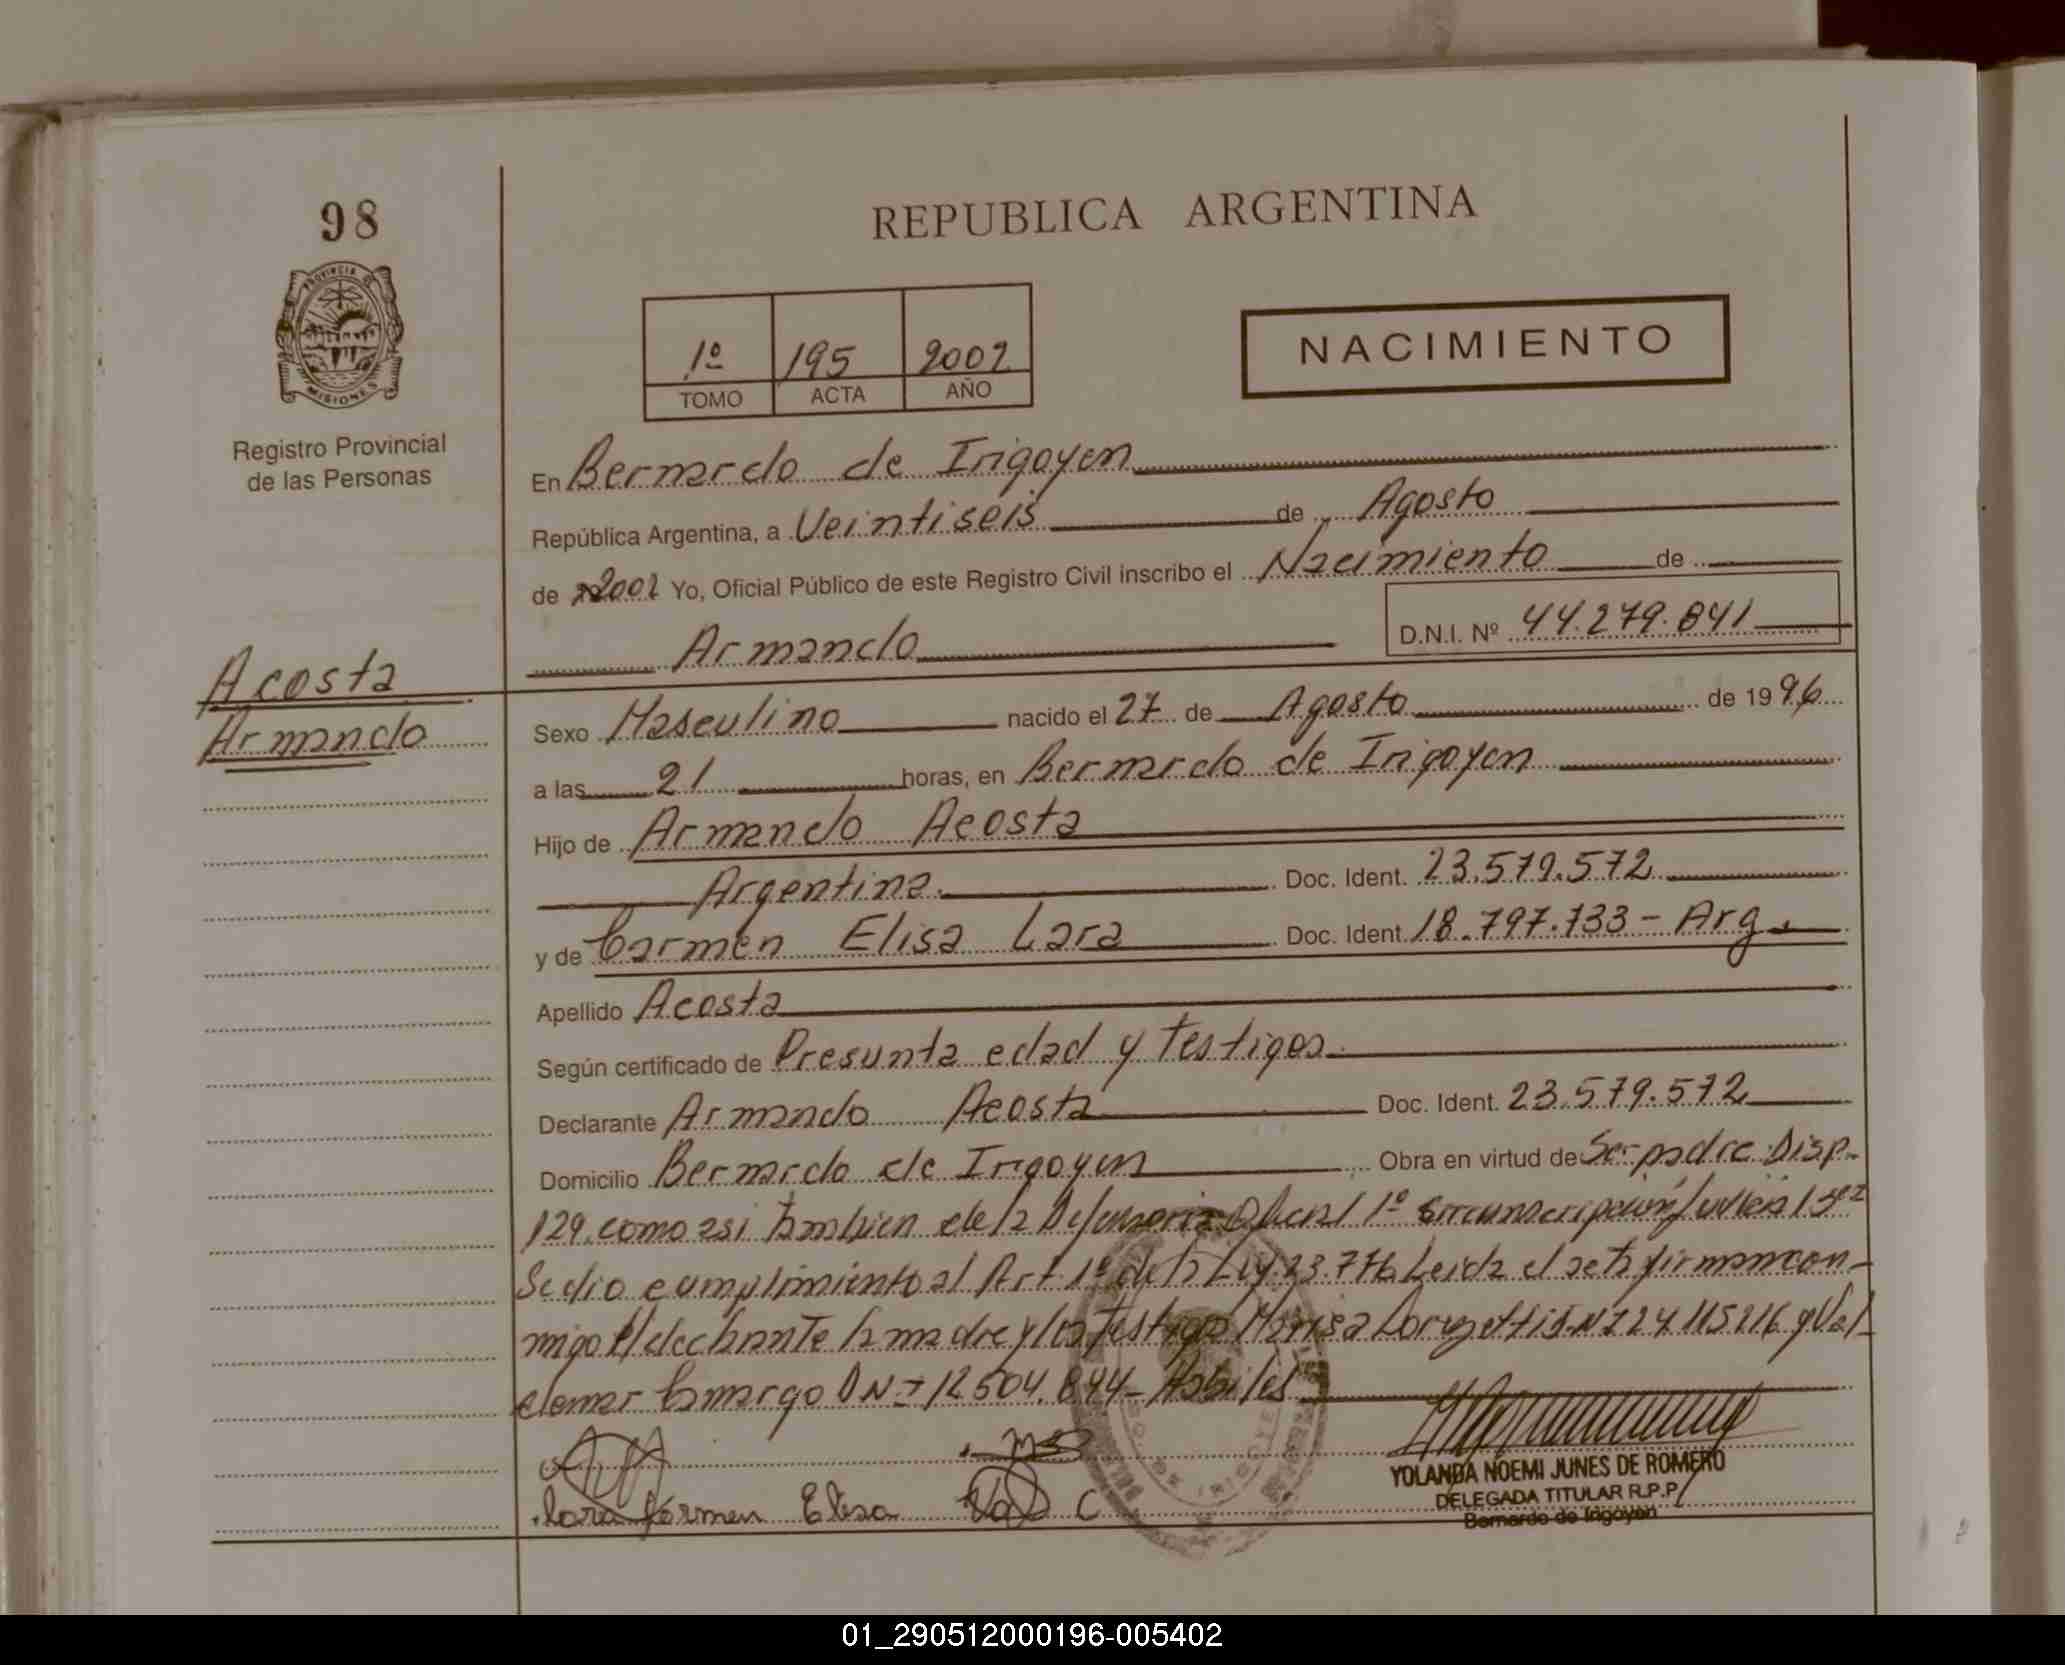 98
REPUBLICA ARGENTINA
PROVINCIA DE
MISIONES
Registro Provincial
de las Personas
1º 195 2002
TOMO ACTA AÑO
NACIMIENTO
En Bernardo de Irigoyen
República Argentina, a Veintiseis de Agosto
de 2002 Yo, Oficial Público de este Registro Civil inscribo el Nacimiento de
Armando D.N.I. Nº 44.279.841
Acosta
Armando
Sexo Masculino nacido el 27 de Agosto de 1996
a las 21 horas, en Bernardo de Irigoyen
Hijo de Armando Acosta
Argentina. Doc. Ident. 23.579.572
y de Carmen Elisa Lara Doc. Ident 18.797.733 - Arg.
Apellido Acosta
Según certificado de Presunta edad y testigos
Declarante Armando Acosta Doc. Ident. 23.579.572
Domicilio Bernardo de Irigoyen Obra en virtud de Ser padre Disp.
129. como asi tambien de la Defensoria Oficial 1º circunscripción Judicial
Se dio cumplimiento al Art. 1º de la Ley 23.776 Leida el acta firman con-
migo el declarante la madre y los testigos Marisa DNI 24115216 y Val-
demar Camargo DNI 12.504.844 - Habiles
Lara Carmen Elisa Val C
YOLANDA NOEMI JUNES DE ROMERO
DELEGADA TITULAR R.P.P.
Bernardo de Irigoyen
01_290512000196-005402